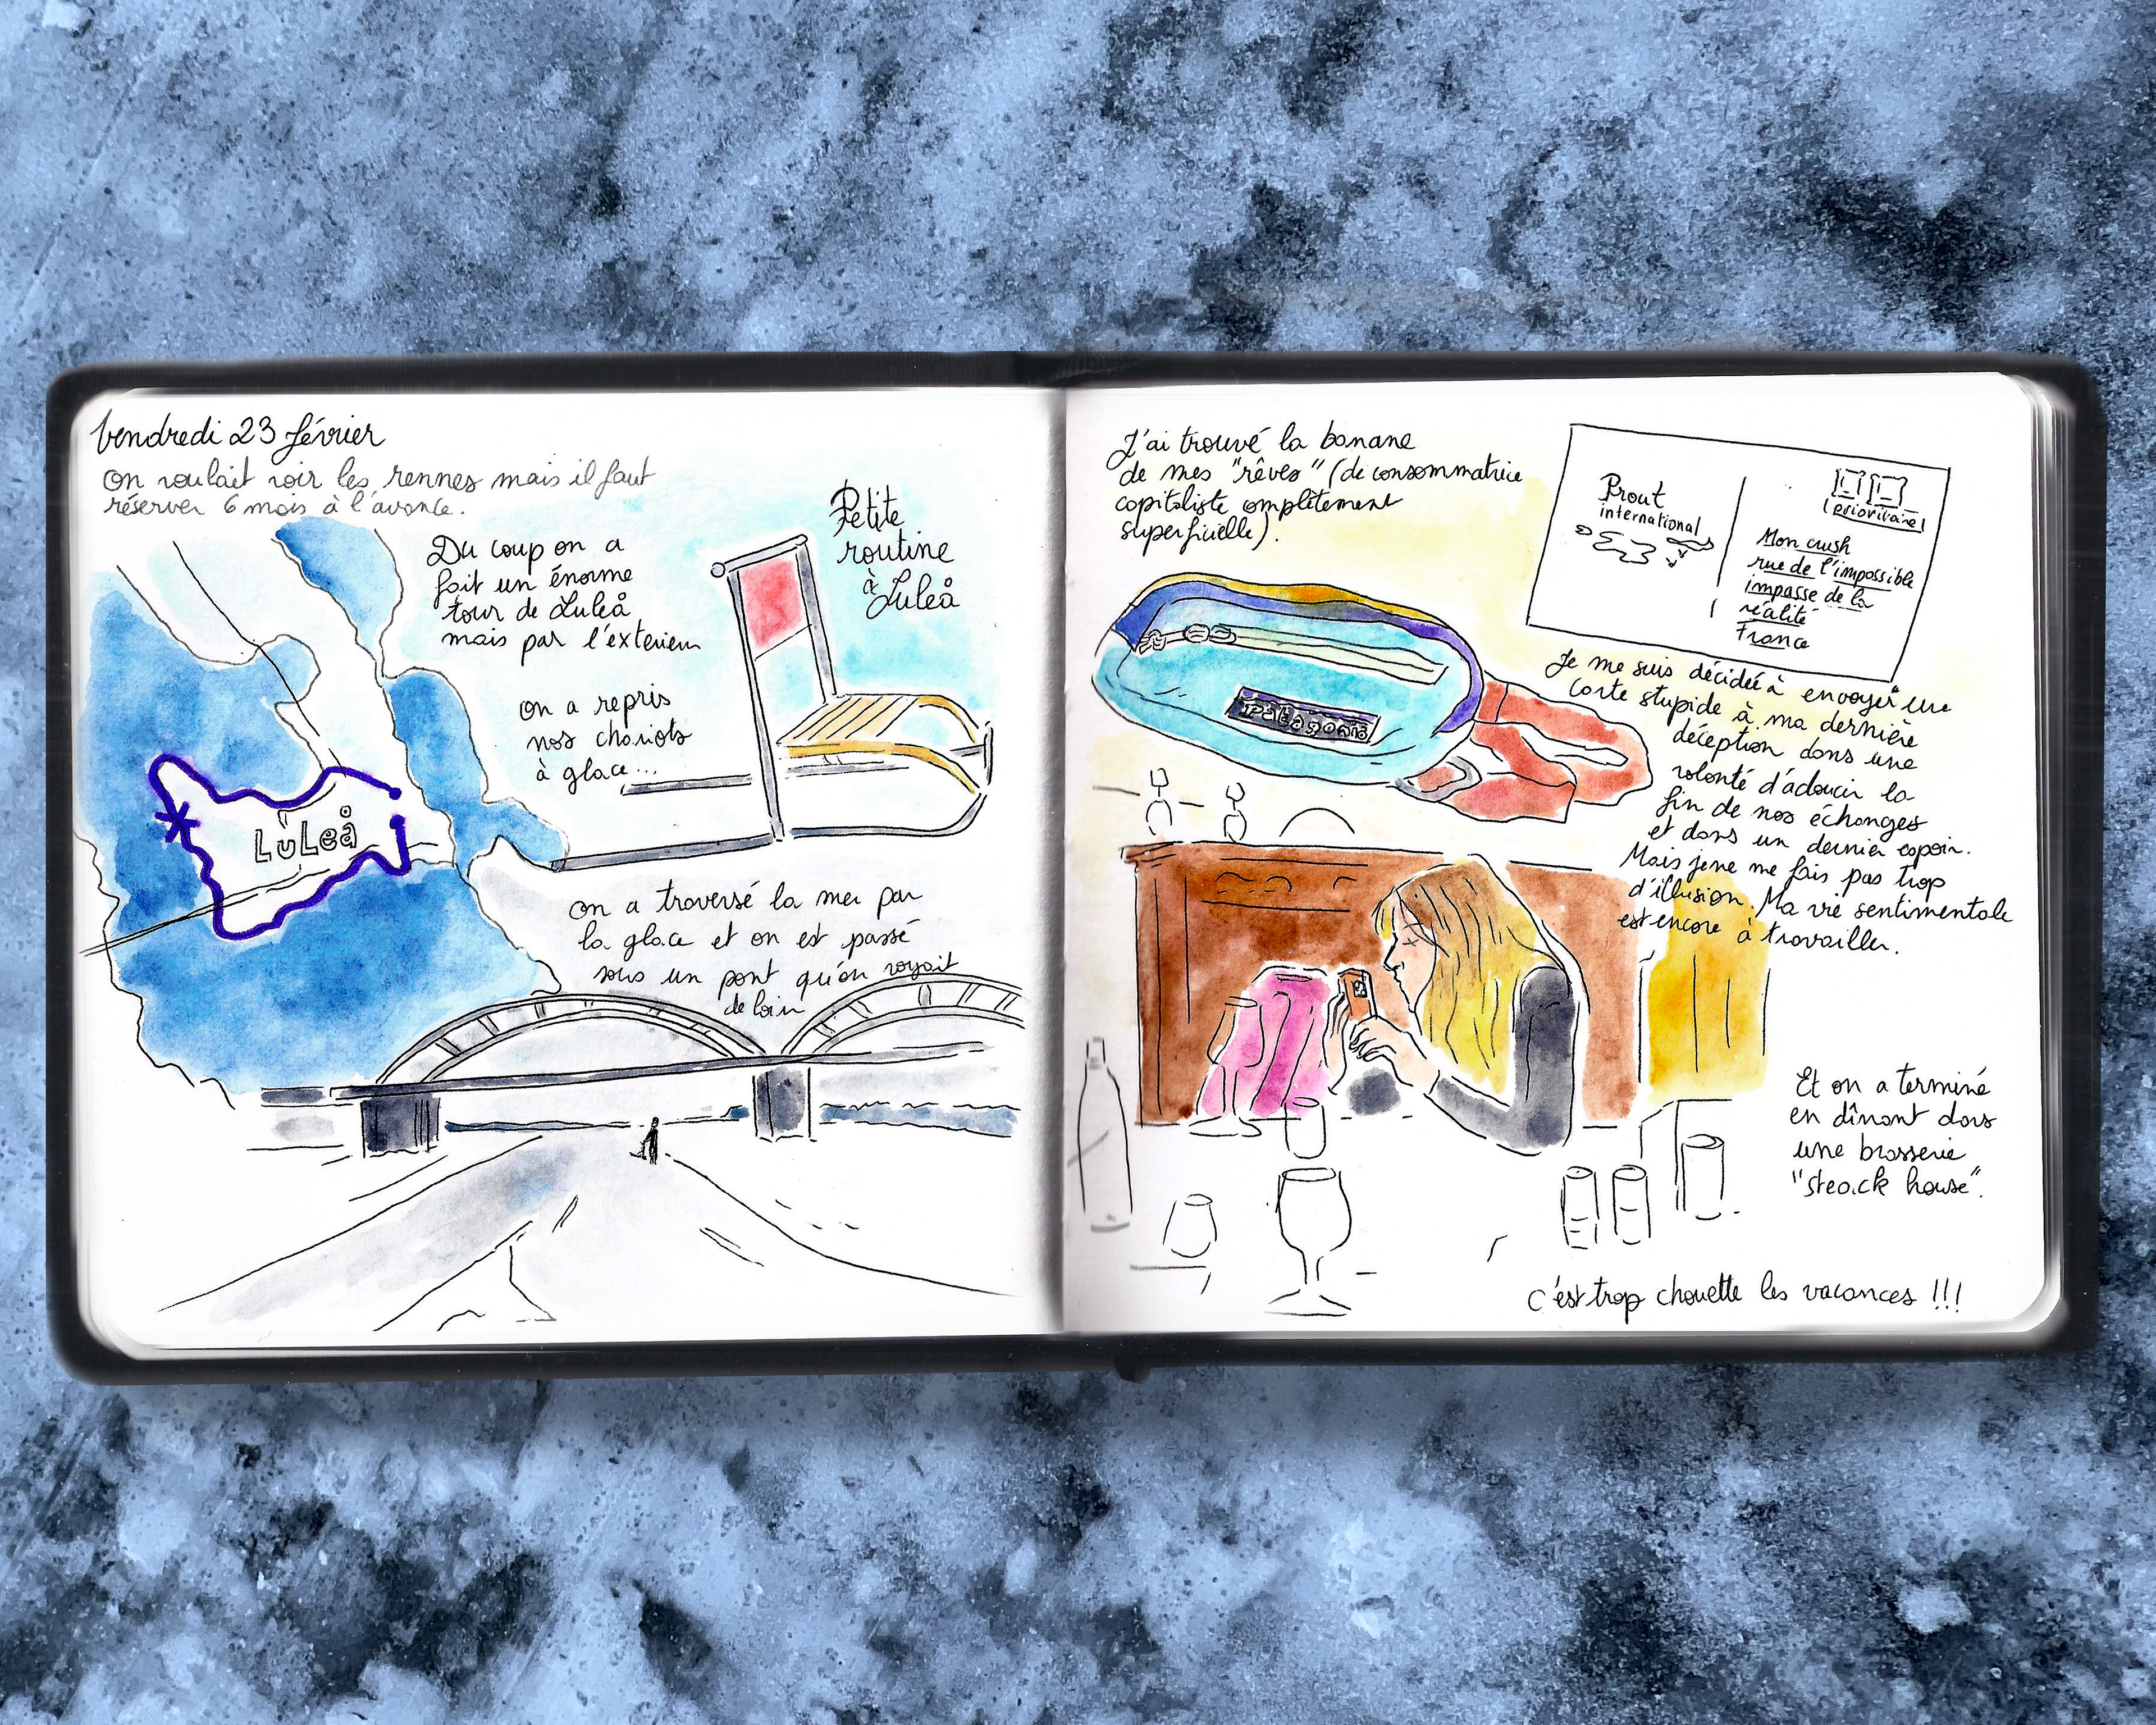 Vendredi 23 février
On voulait voir les rennes mais il faut
réserver 6 mois à l'avance.
Du coup on a
fait un énorme
tour de Luleå
mais par l'extérieur
Petite
routine
à Luleå
on a repris
nos chariots
à glace...
LuLeå
on a traversé la mer par
la glace et on est passé
sous un pont qu'on voyait
de loin
J'ai trouvé la banane
de mes "rêves" (de consommatrice
capitaliste omplètement
superficielle).
patagonia
Prout
international
prioritaire
Mon crush
rue de l'impossible
impasse de la
réalité
France
Je me suis décidée à envoyer une
carte stupide à ma dernière
déception dans une
volonté d'adoucir la
fin de nos échanges
et dans un dernier espoir.
Mais je ne me fais pas trop
d'illusion. Ma vie sentimentale
est encore à travailler.
Et on a terminé
en dînant dans
une brasserie
"steack house".
C'est trop chouette les vacances !!!